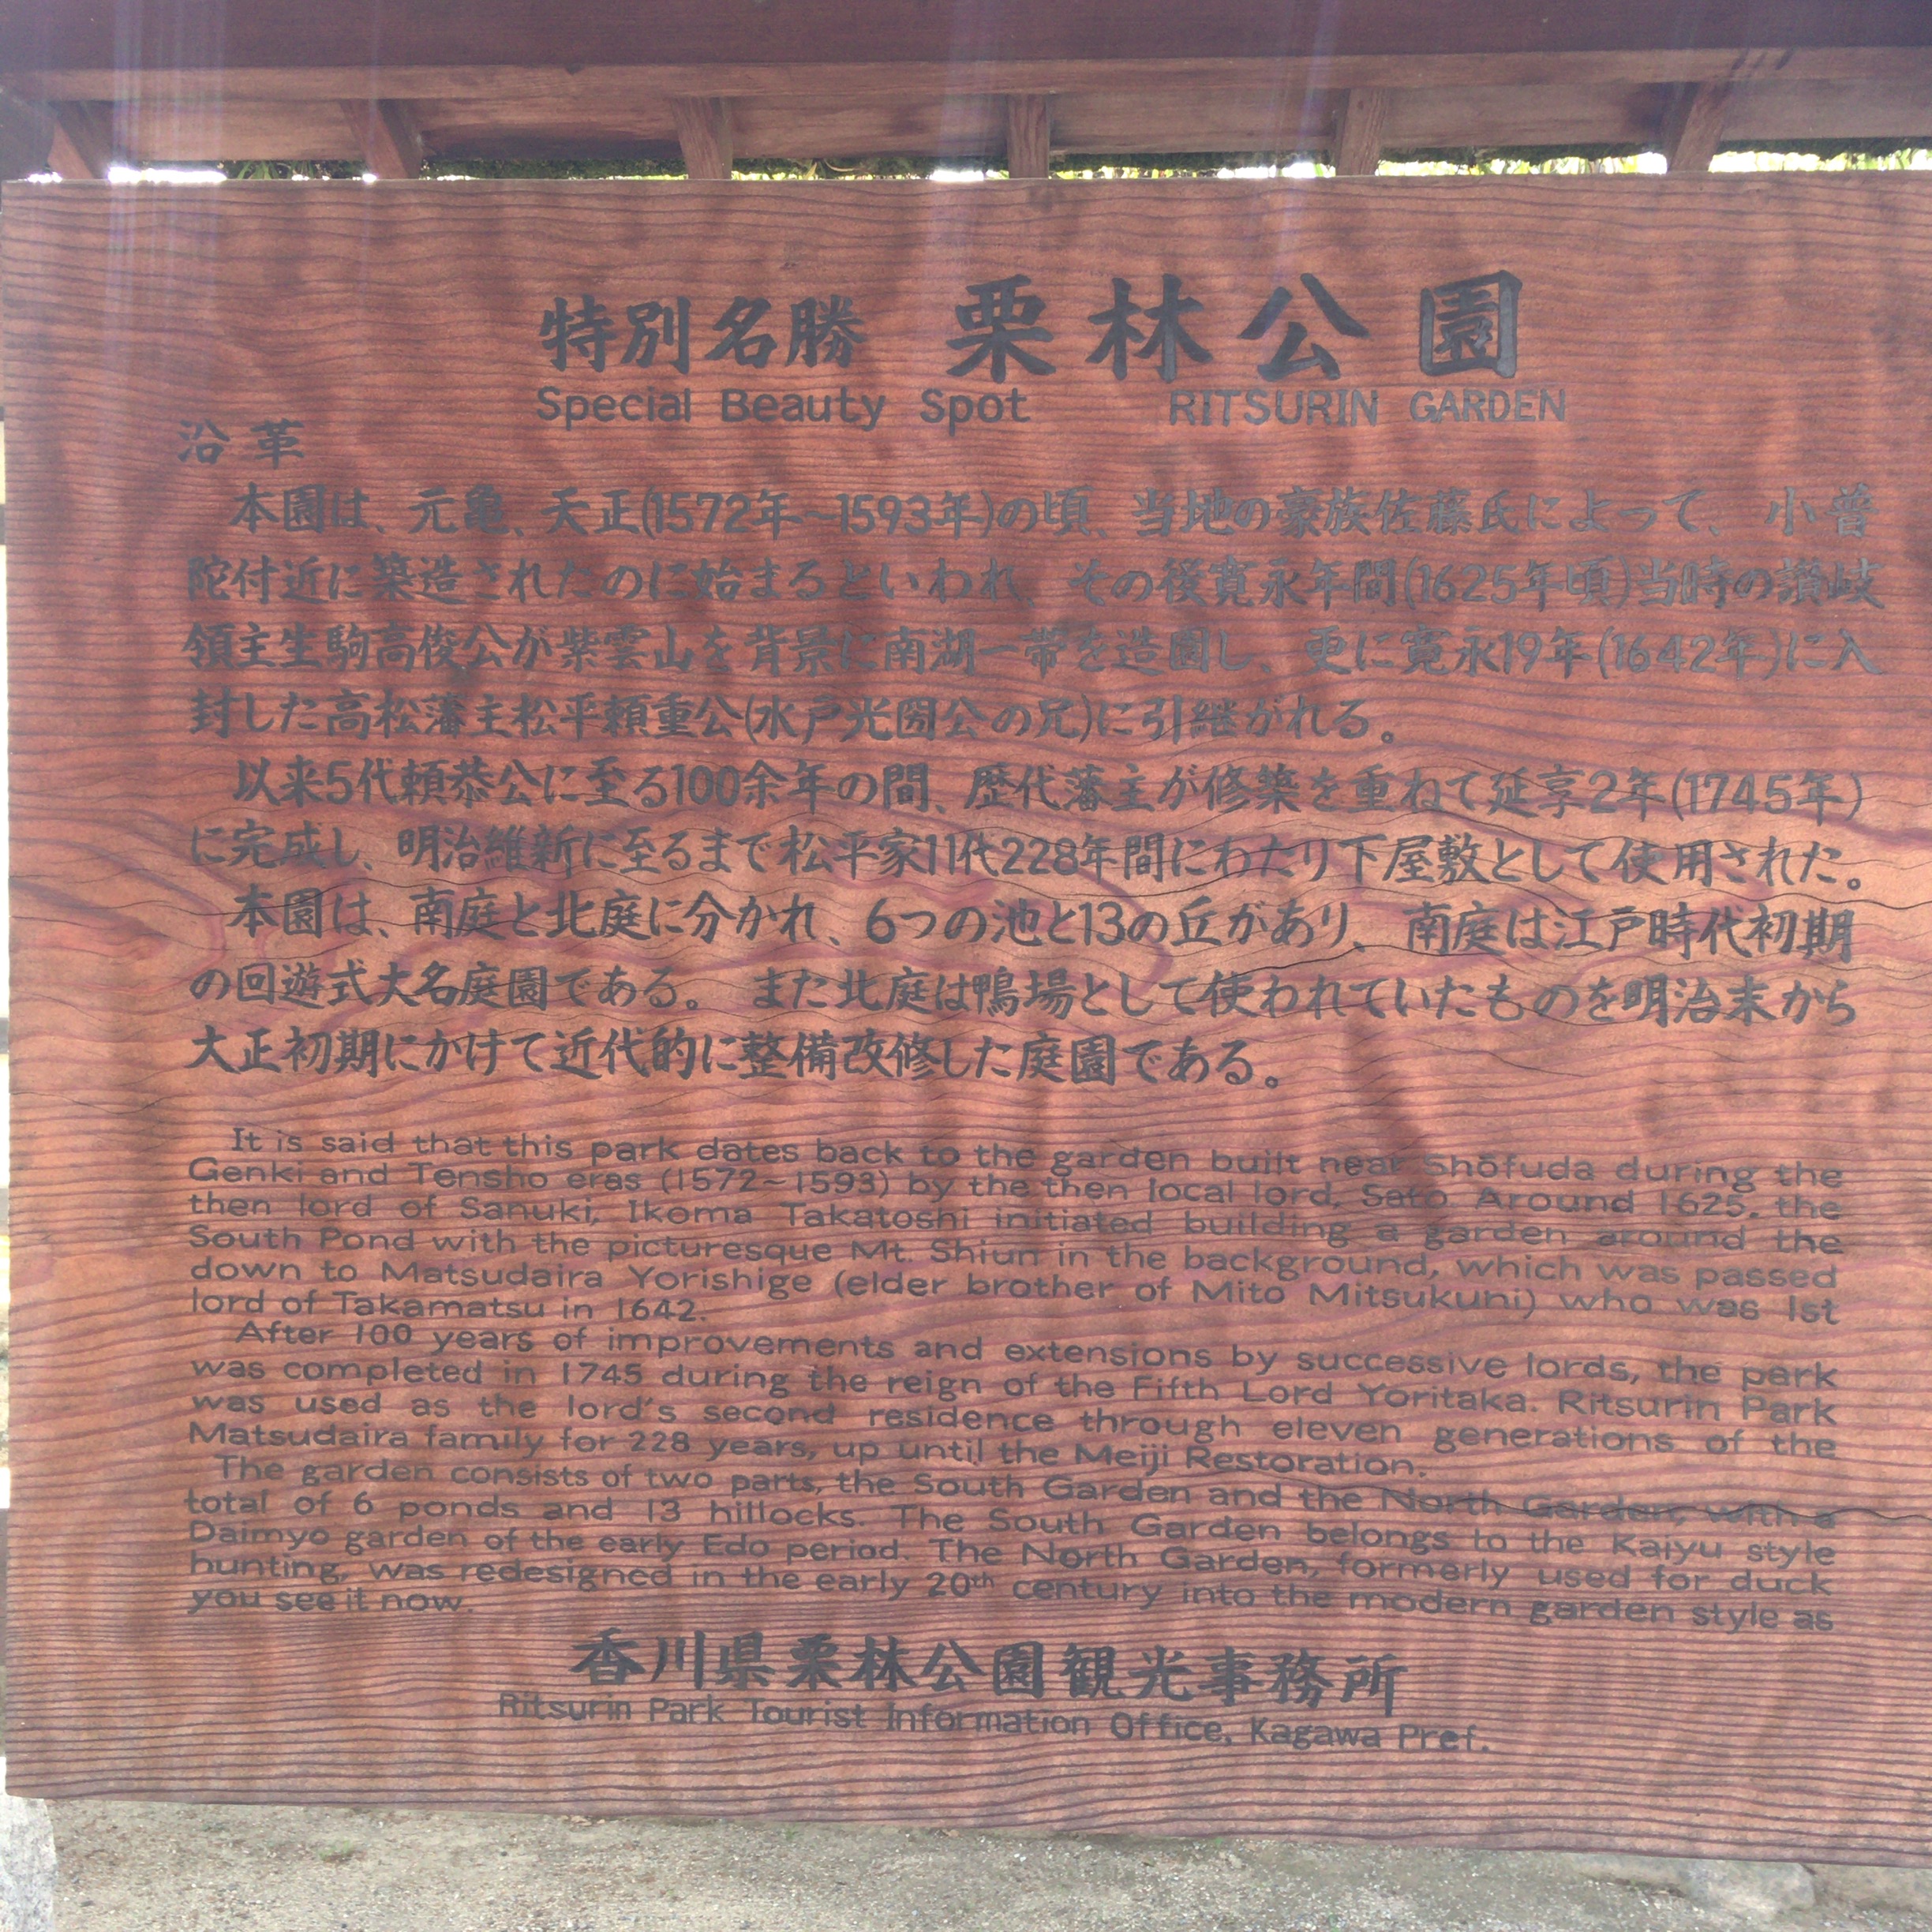 特別名勝 栗林公園
Special Beauty Spot RITSURIN GARDEN
沿革
本園は、元亀、天正(1572年~1593年)の頃、当地の豪族佐藤氏によって、小普
陀付近に築造されたのに始まるといわれ、その後寛永年間(1625年頃)当時の讃岐
領主生駒高俊公が紫雲山を背景に南湖一帯を造園し、更に寛永19年(1642年)に入
封した高松藩主松平頼重公(水戸光圀公の兄)に引継がれる。
以来5代頼恭公に至る100余年の間、歴代藩主が修築を重ねて延享2年(1745年)
に完成し、明治維新に至るまで松平家11代228年間にわたり下屋敷として使用された。
本園は、南庭と北庭に分かれ、6つの池と13の丘があり、南庭は江戸時代初期
の回遊式大名庭園である。 また北庭は鴨場として使われていたものを明治末から
大正初期にかけて近代的に整備改修した庭園である。
It is said that this park dates back to the garden built near Shōfuda during the
Genki and Tensho eras (1572~1593) by the then local lord, Sato. Around 1625, the
then lord of Sanuki, Ikoma Takatoshi initiated building a garden around the
South Pond with the picturesque Mt. Shiun in the background, which was passed
down to Matsudaira Yorishige (elder brother of Mito Mitsukuni) who was 1st
lord of Takamatsu in 1642.
After 100 years of improvements and extensions by successive lords, the park
was completed in 1745 during the reign of the Fifth Lord Yoritaka. Ritsurin Park
was used as the lord's second residence through eleven generations of the
Matsudaira family for 228 years, up until the Meiji Restoration.
The garden consists of two parts, the South Garden and the North Garden, with a
total of 6 ponds and 13 hillocks. The South Garden belongs to the Kaiyu style
Daimyo garden of the early Edo period. The North Garden, formerly used for duck
hunting, was redesigned in the early 20th century into the modern garden style as
you see it now.
香川県栗林公園観光事務所
Ritsurin Park Tourist Information Office, Kagawa Pref.